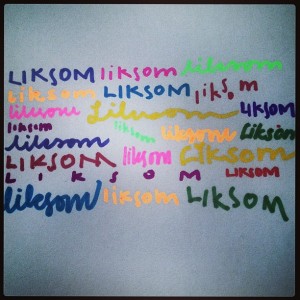 LIKSOM liksom liksom
liksom LIKSOM liksom
liksom liksom LIKSOM
liksom liksom liksom liksom
liksom
LIKSOM liksom liksom
LIKSOM LIKSOM
liksom liksom LIKSOM